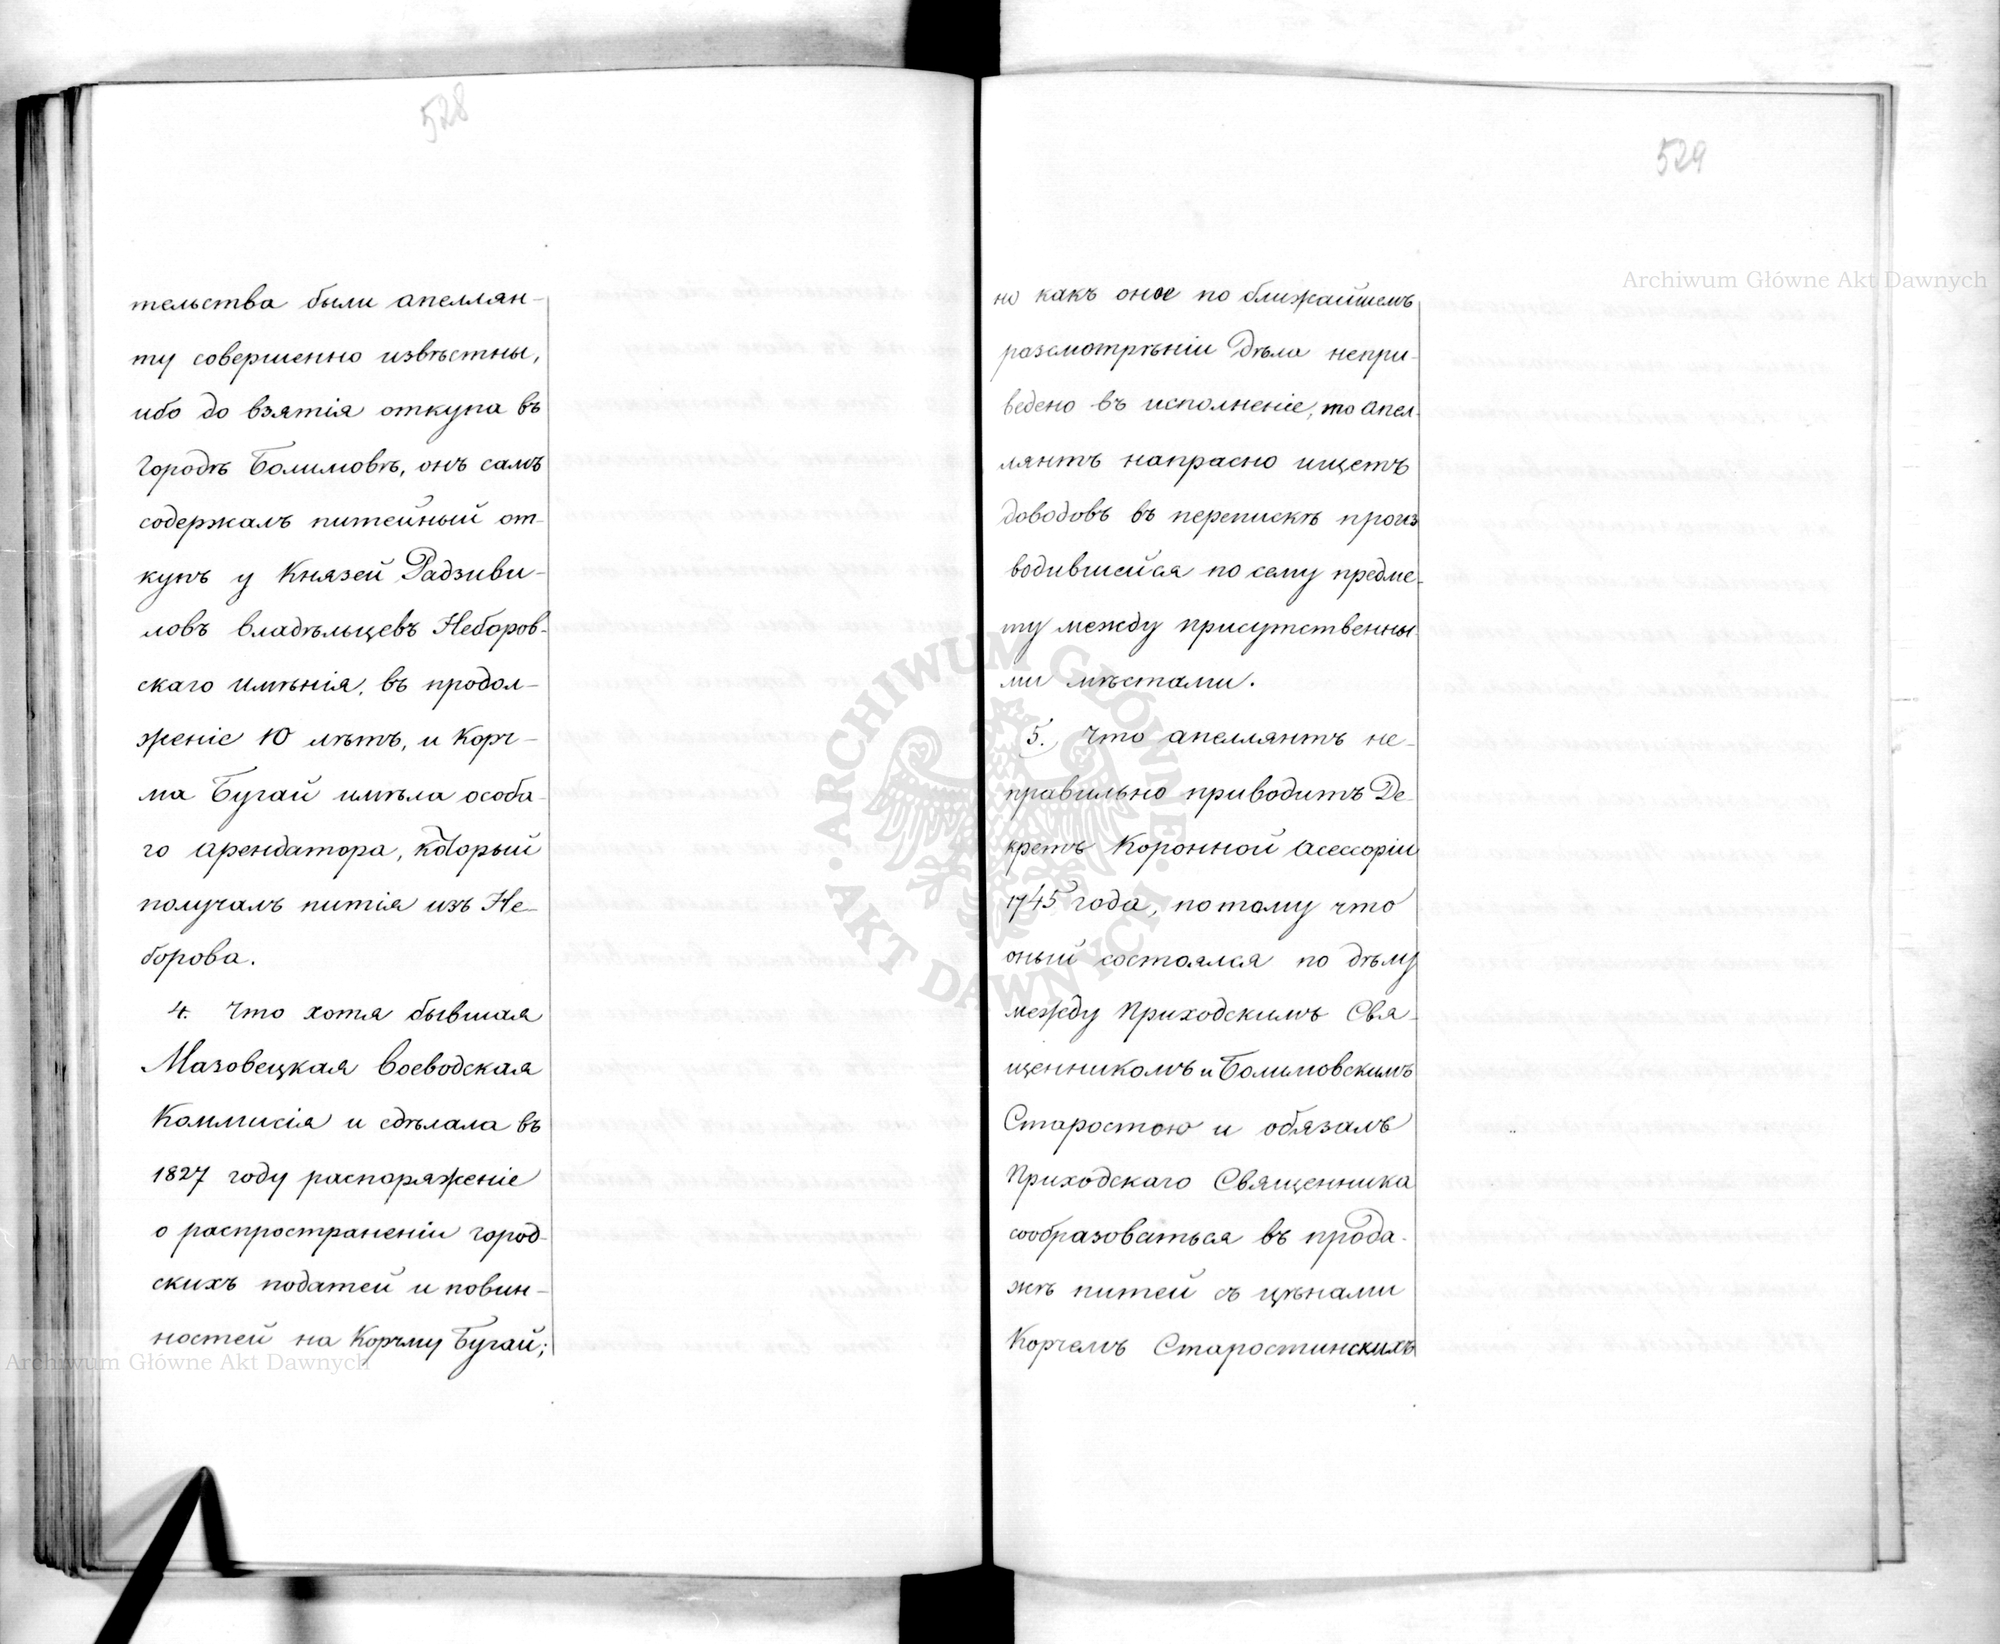 528
тельства были апеллян-
ту совершенно извѣстны,
ибо до взятія откупа въ
городѣ Болимовѣ, онъ самъ
содержалъ питейный от-
купъ у Князей Радзиви-
ловъ владѣльцевъ Неборов-
скаго имѣнія, въ продол-
женіе 10 лѣтъ, и Корч-
ма Бугай имѣла особа-
го арендатора, который
получалъ питія изъ Не-
борова.
4. Что хотя бывшая
Мазовецкая Воеводская
Коммисія и сдѣлала въ
1827 году распоряженіе
о распространеніи город-
скихъ податей и повин-
ностей на Корчму Бугай;
529
но какъ оное по ближайшемъ
разсмотрѣніи Дѣла непри-
ведено въ исполненіе, то Апел-
лянтъ напрасно ищетъ
доводовъ въ перепискѣ произ
водившейся по сему предме-
ту между присутственны-
ми мѣстами.
5. Что апеллянтъ не-
правильно приводитъ Де-
кретъ Коронной Асессоріи
1745 года, потому что
оный состоялся по дѣлу
между Приходскимъ Свя-
щенникомъ и Болимовскимъ
Старостою и обязалъ
Приходскаго Священника
сообразоваться въ прода-
жѣ питей съ цѣнами
Корчемъ Старостинскихъ
Archiwum Główne Akt Dawnych
Archiwum Główne Akt Dawnych
ARCHIWUM GŁÓWNE · AKT DAWNYCH ·